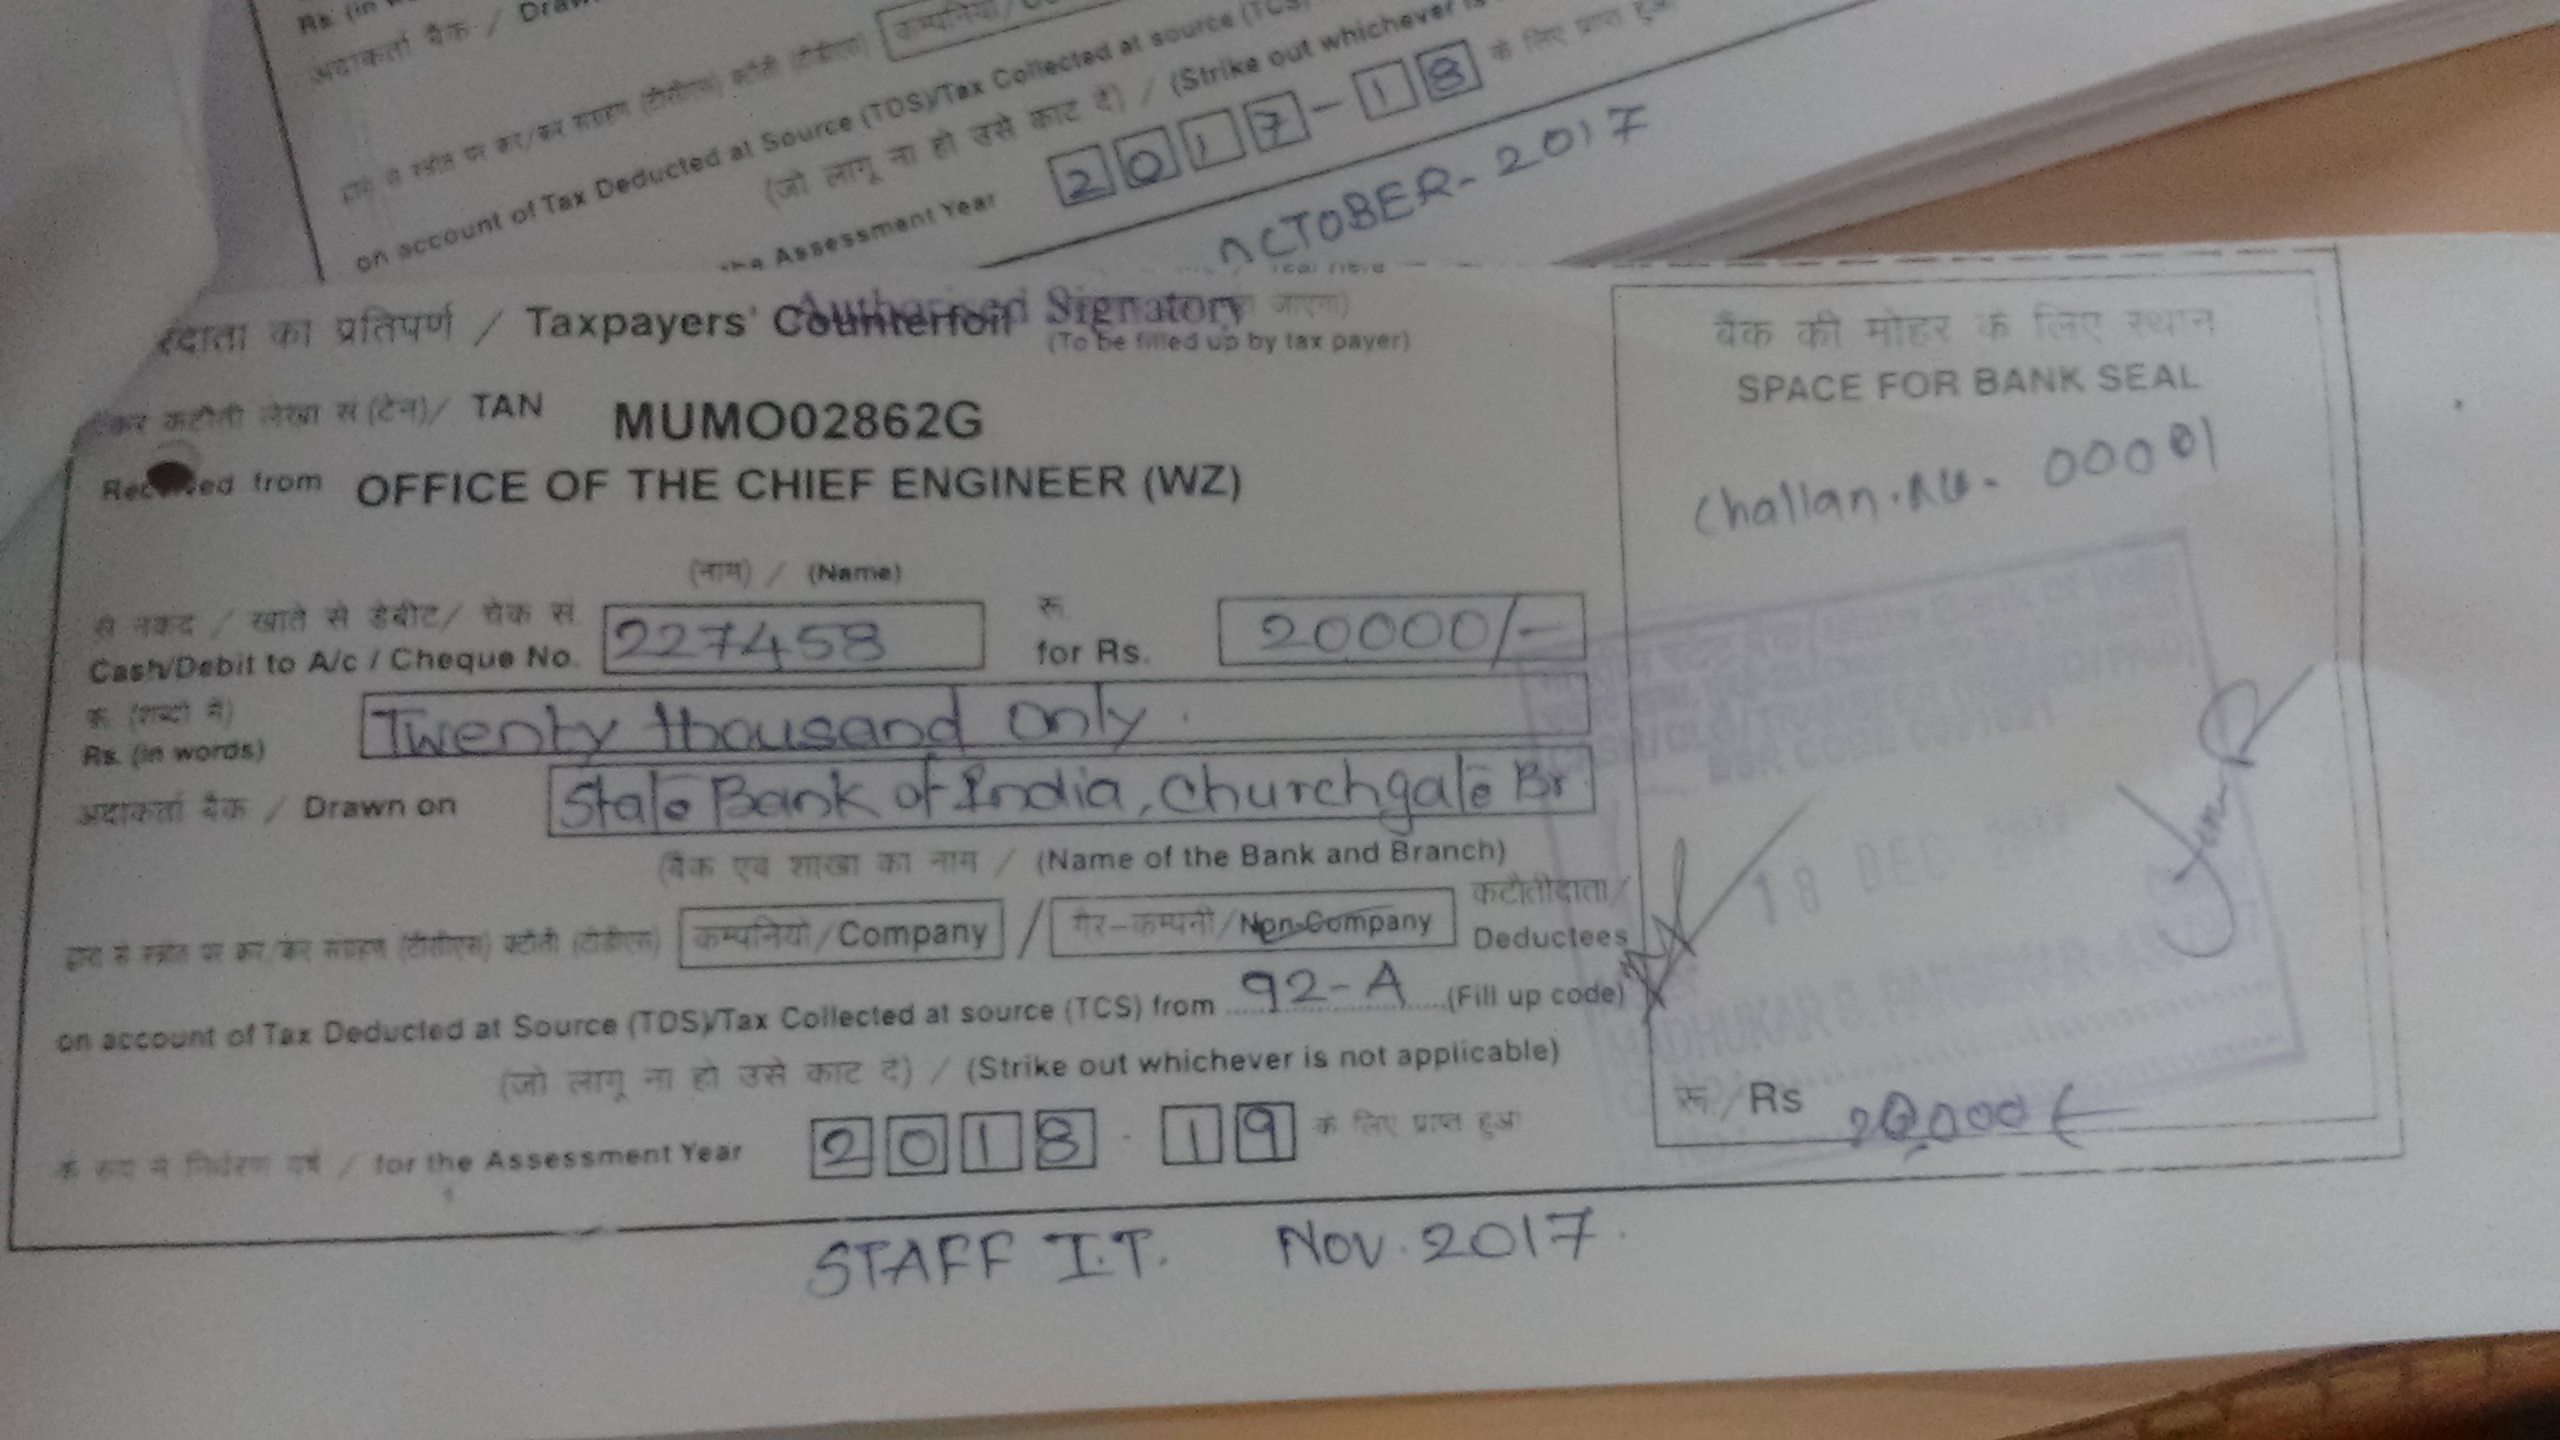 Rs. (in
अदाकर्ता बैंक /
द्वारा से स्त्रोत पर कर/कर संग्रहण (टीसीएस) कटौती (टीडीएस) कम्पनियों/
on account of Tax Deducted at Source (TDS)/Tax Collected at source (TCS)
(जो लागू ना हो उसे काट दें) / (Strike out whichever is
Assessment Year 2017-18 के लिए प्राप्त हुआ
OCTOBER-2017
रदाता का प्रतिपर्ण / Taxpayers' Counterfoil
Authorised Signatory
जाएगा)
(To be filled up by tax payer)
कर कटौती लेखा सं (टेन)/ TAN MUMO02862G
Received from OFFICE OF THE CHIEF ENGINEER (WZ)
(नाम) / (Name)
से नकद / खाते से डेबीट/ चेक सं. रू.
Cash/Debit to A/c / Cheque No. 227458 for Rs. 20000/-
रू. (शब्दों में)
Rs. (in words) Twenty thousand only.
अदाकर्ता बैंक / Drawn on State Bank of India, Churchgate Br
(बैंक एवं शाखा का नाम / (Name of the Bank and Branch)
द्वारा से स्त्रोत पर कर/कर संग्रहण (टीसीएस) कटौती (टीडीएस) कम्पनियों/Company / गैर-कम्पनी/Non-Company कटौतीदाता/
Deductees
on account of Tax Deducted at Source (TDS)/Tax Collected at source (TCS) from 92-A (Fill up code)
(जो लागू ना हो उसे काट दें) / (Strike out whichever is not applicable)
के रूप में निर्धारण वर्ष / for the Assessment Year 2018-19 के लिए प्राप्त हुआ
STAFF I.T. Nov. 2017.
बैंक की मोहर के लिए स्थान
SPACE FOR BANK SEAL
Challan.No- 00001
18 DEC
रू/Rs 20,000/-